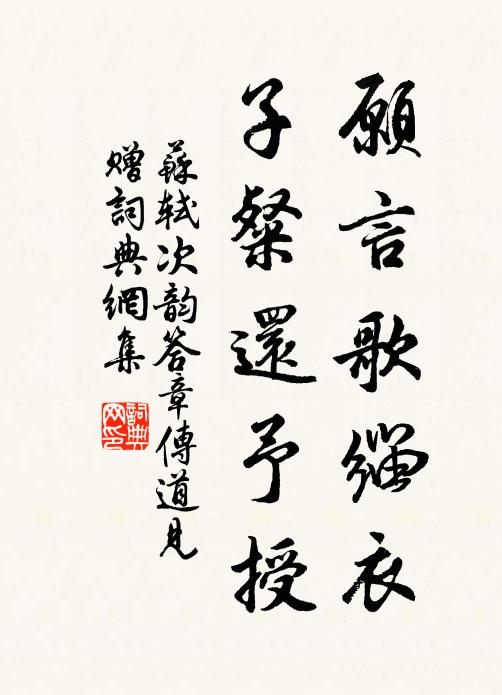 願言歌緇衣
子粲還予授
蘇軾次韵答章傳道見
贈詞典網集
詞典
网印